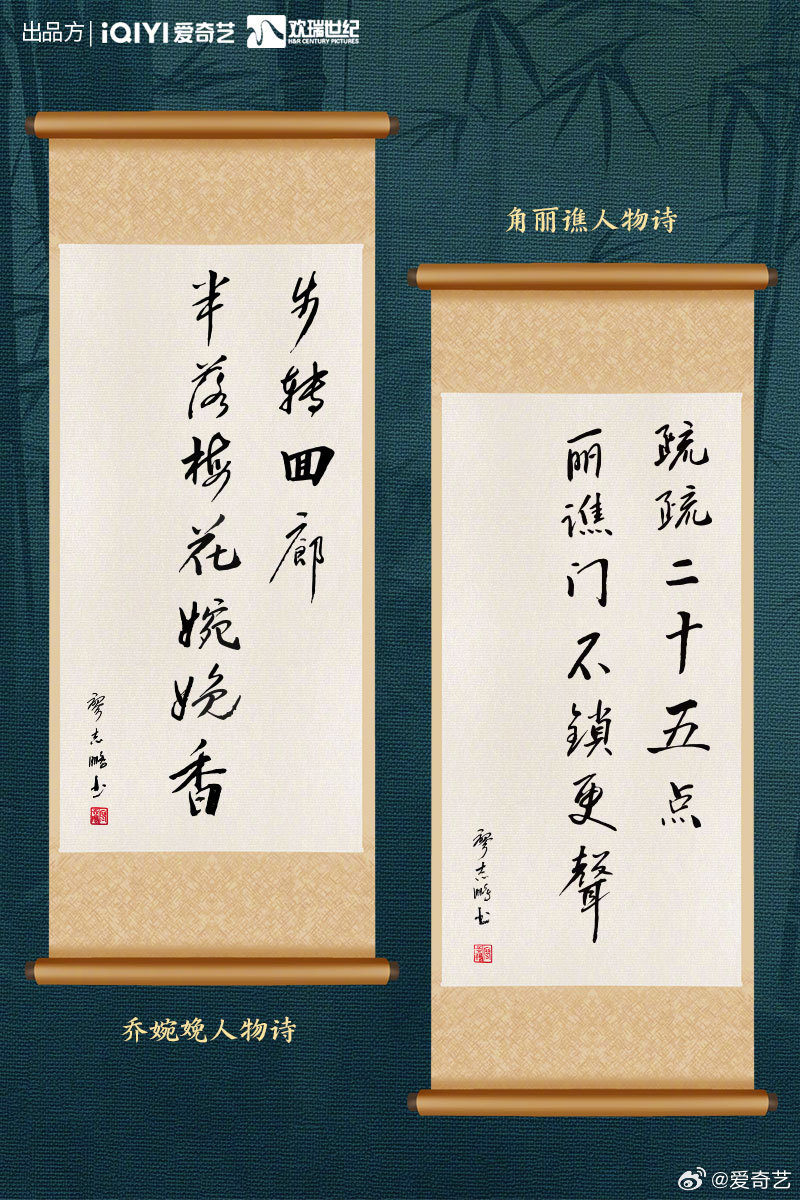 出品方 | iQIYI 爱奇艺 欢瑞世纪
H&R CENTURY PICTURES
步转回廊
半落梅花婉娩香
廖志鹏书
乔婉娩人物诗
角丽谯人物诗
疏疏二十五点
丽谯门不鎖更聲
廖志鹏书
@爱奇艺